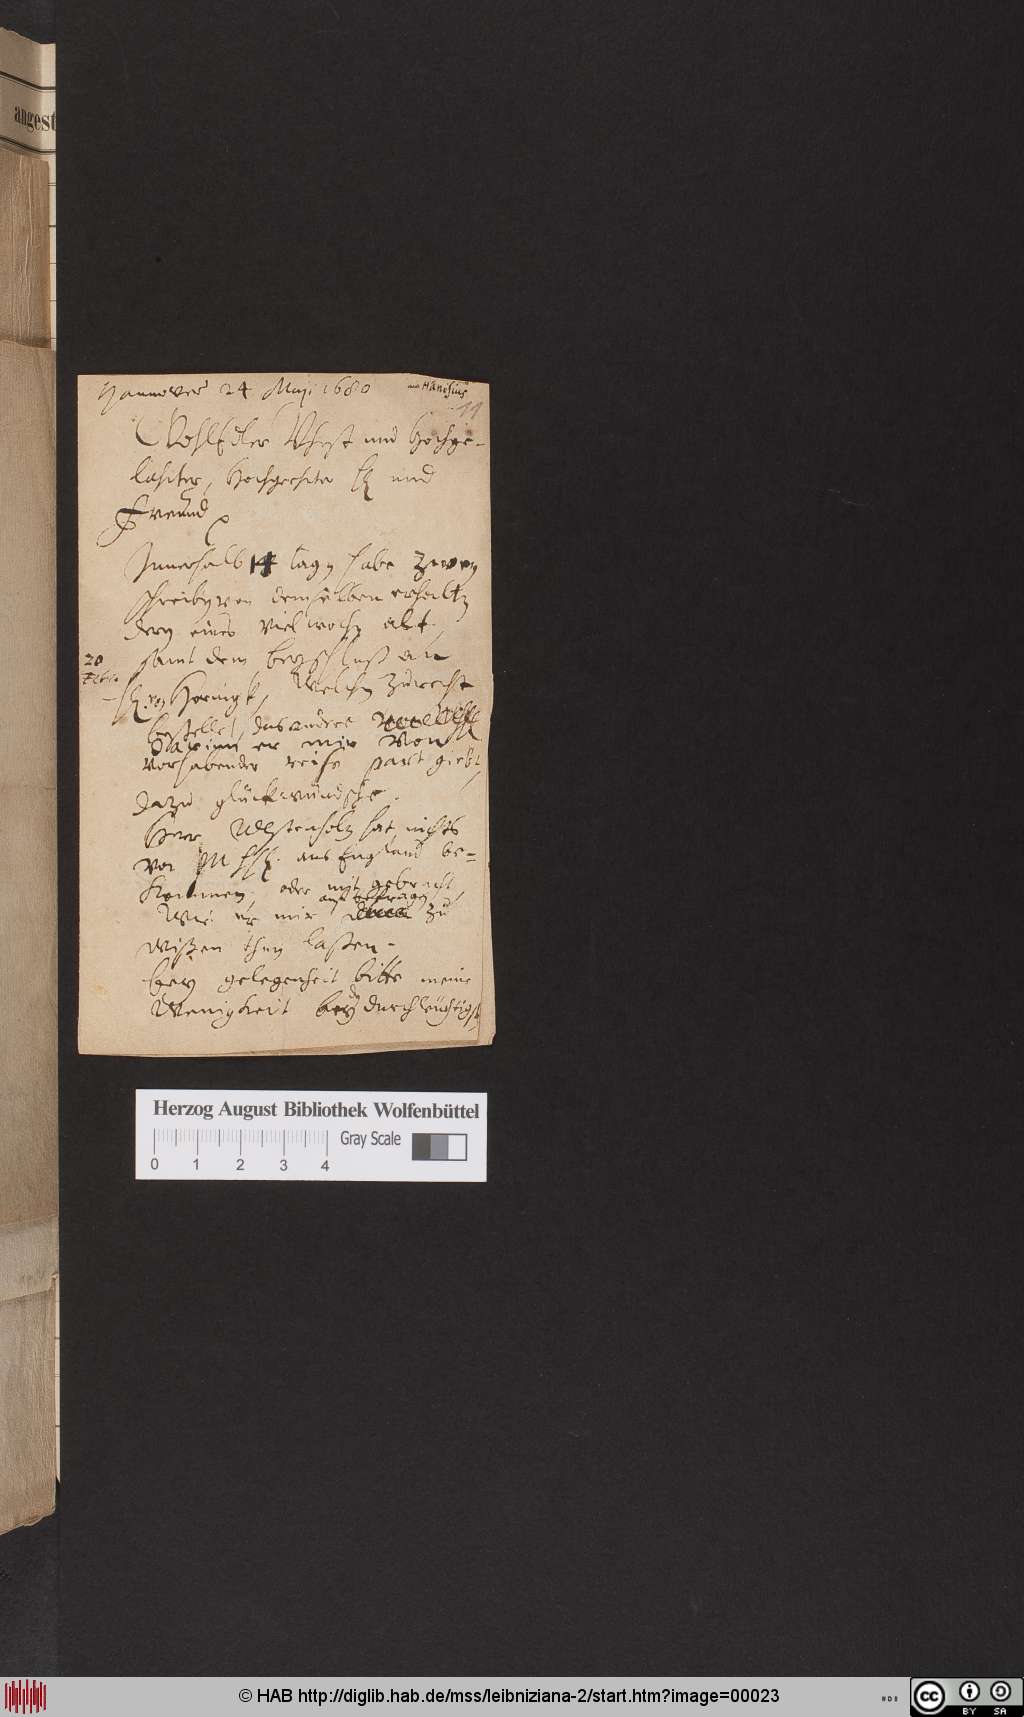 angest
Hannover 24 Maji 1680
Hanesius
11
WohlEdler Vhest und Hochge-
lahrter, Hochgeehrter H und
Freund
Innerhalb 14 tagen habe zween
schreiben von demselben erhalten
deren eines viel wochen alt,
20
Febr.
samt dem beyschluß an
H. von Hornigk, welchen zurecht
bestellet, das andere
darinn er mir von
vorhabender reise part giebt,
dazu glückwündsche.
Herr Westenholz hat nichts
von M H H. aus England be-
kommen, oder mit gebracht,
auf befragen
Wie er mir zu
wißen thun laßen.
bey gelegenheit bitte meine
Wenigkeit bey durchleüchtigst
Herzog August Bibliothek Wolfenbüttel
Gray Scale
0 1 2 3 4
© HAB http://diglib.hab.de/mss/leibniziana-2/start.htm?image=00023
cc BY SA